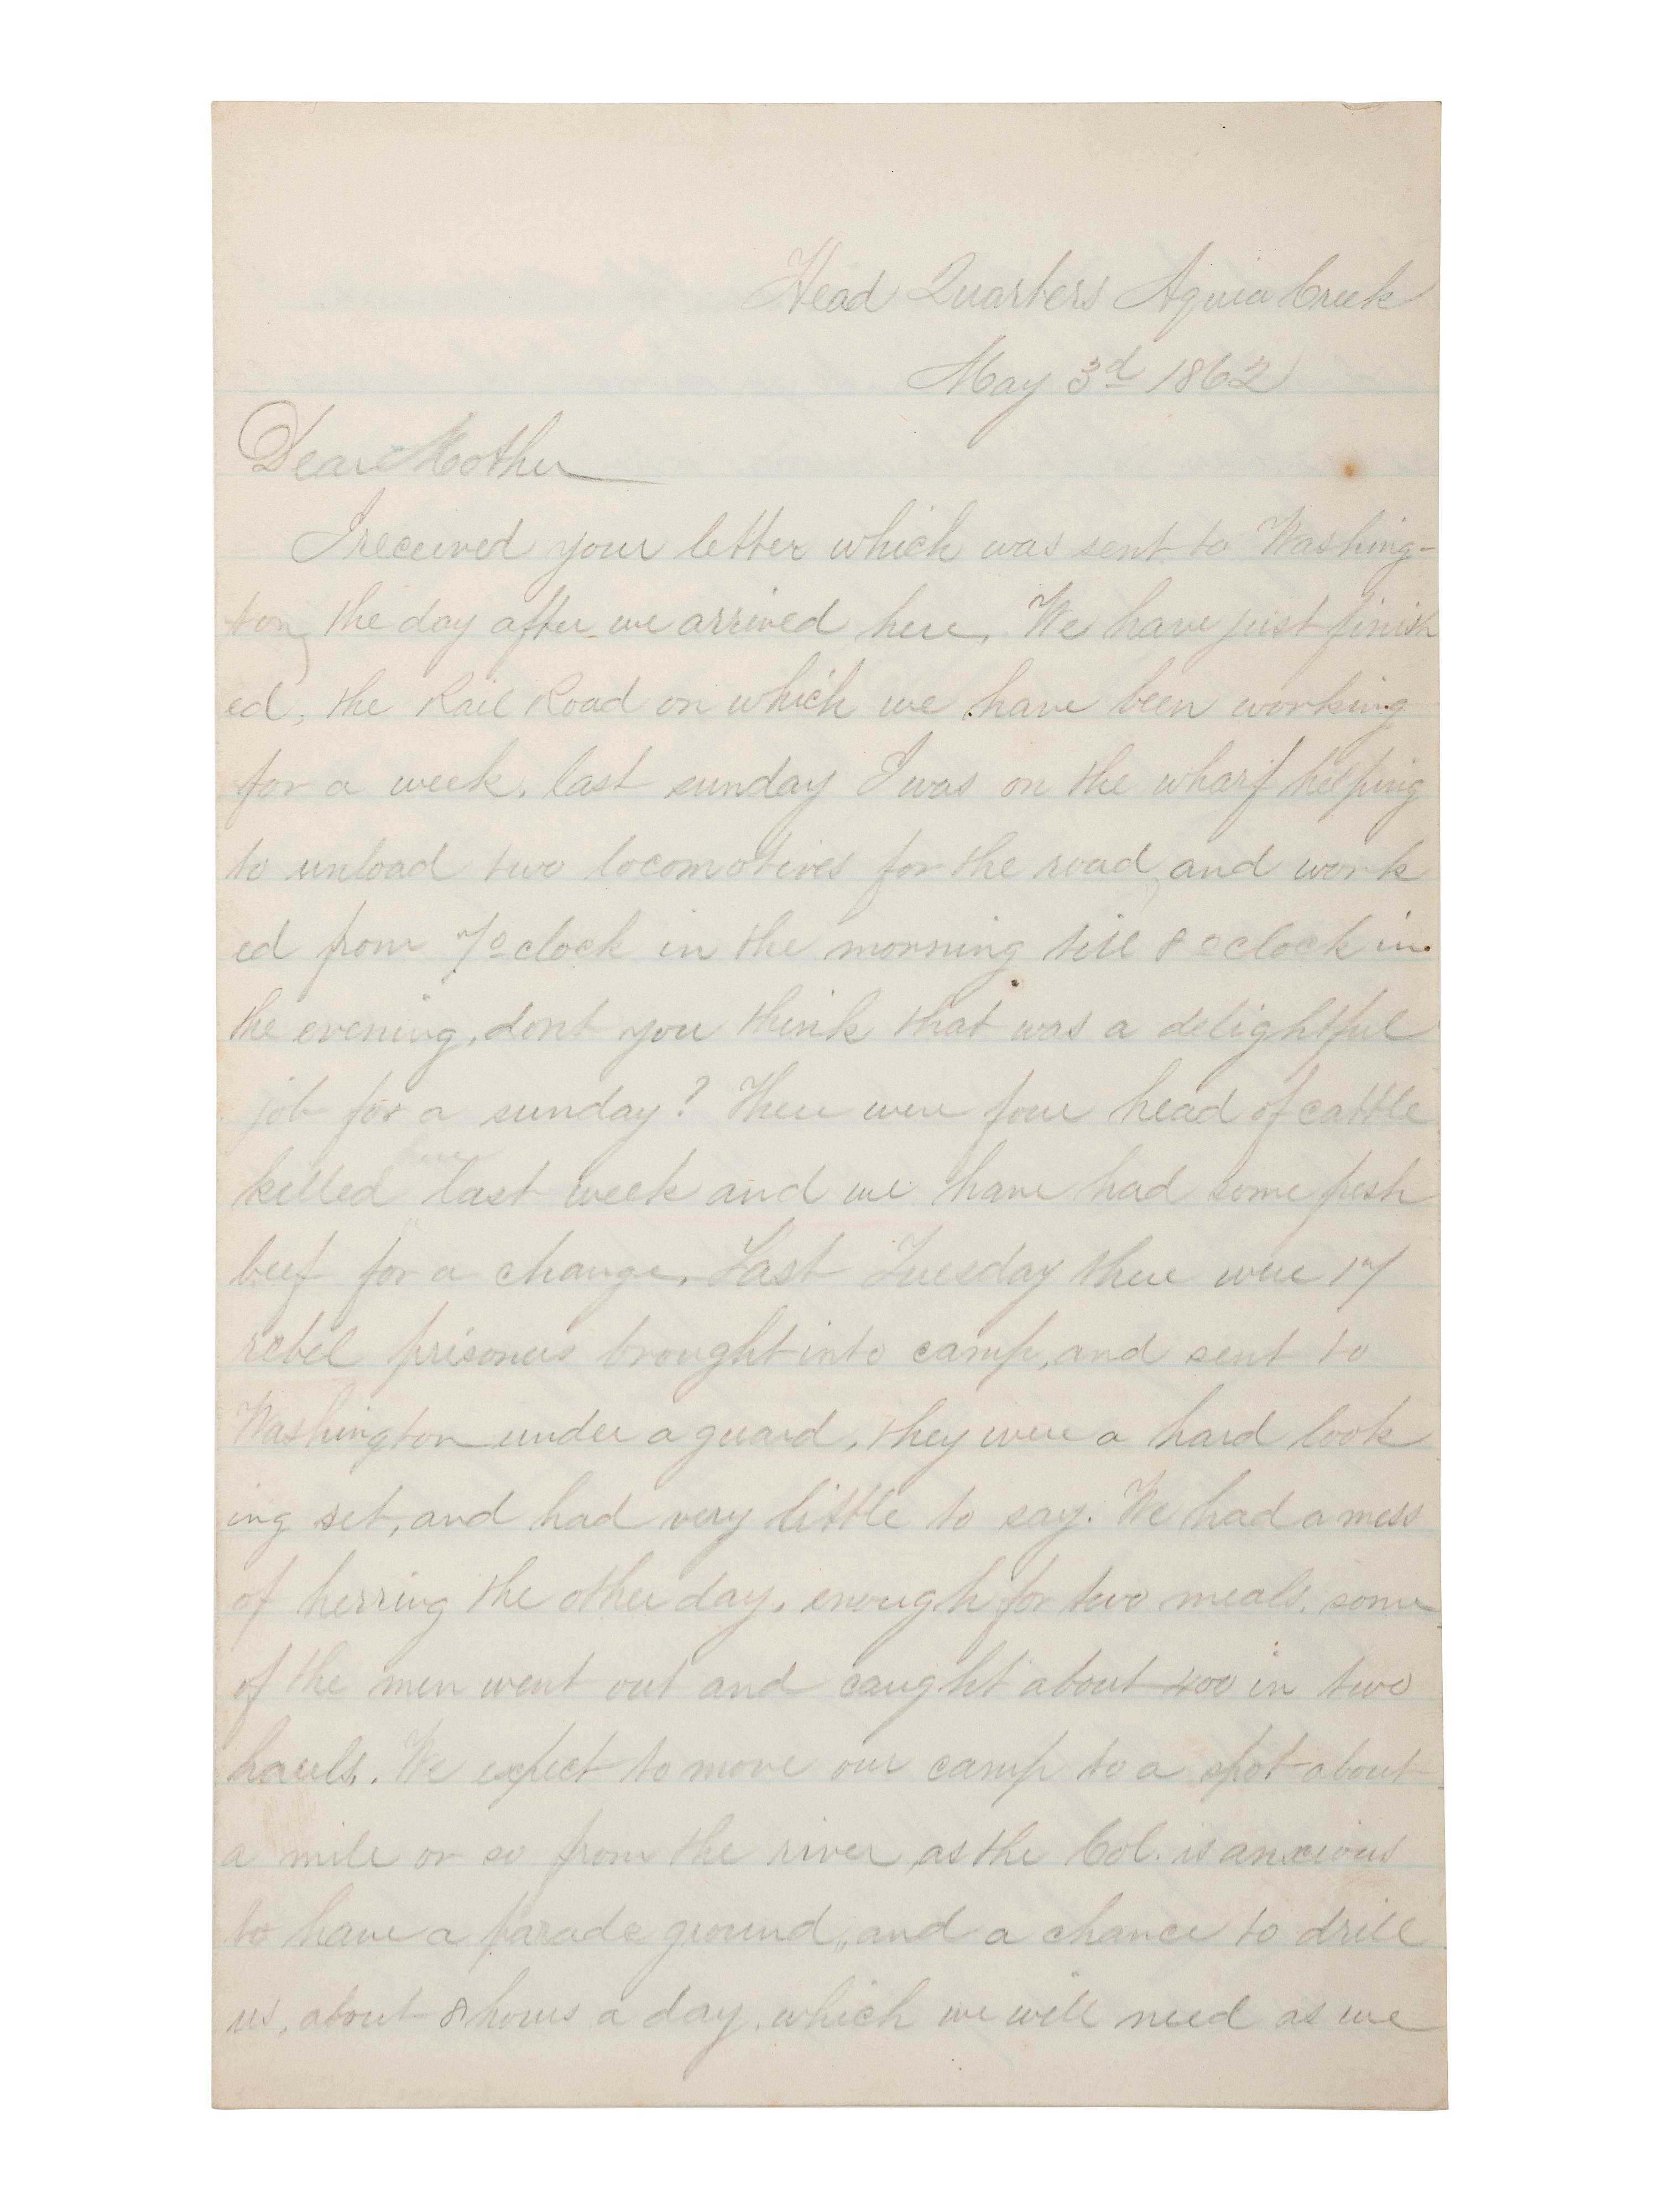 Head Quarters Aquia Creek
May 3d 1862
Dear Mother
I received your letter which was sent to Washing-
ton, the day after we arrived here. We have just finish
ed, the Rail Road on which we have been working
for a week. last sunday I was on the wharf helping
to unload two locomotives for the road, and work
ed from 7 oclock in the morning till 8 oclock in
the evening, dont you think that was a delightful
job for a sunday? There were four head of cattle
here
killed last week and we have had some fresh
beef for a change. Last Tuesday there were 17
rebel prisoners brought into camp, and sent to
Washington under a guard, they were a hard look
ing set, and had very little to say. We had a mess
of herring the other day, enough for two meals. some
of the men went out and caught about 400 in two
hauls. We expect to move our camp to a spot about
a mile or so from the river, as the Col. is anxious
to have a parade ground, and a chance to drill
us, about 8 hours a day, which we will need as we